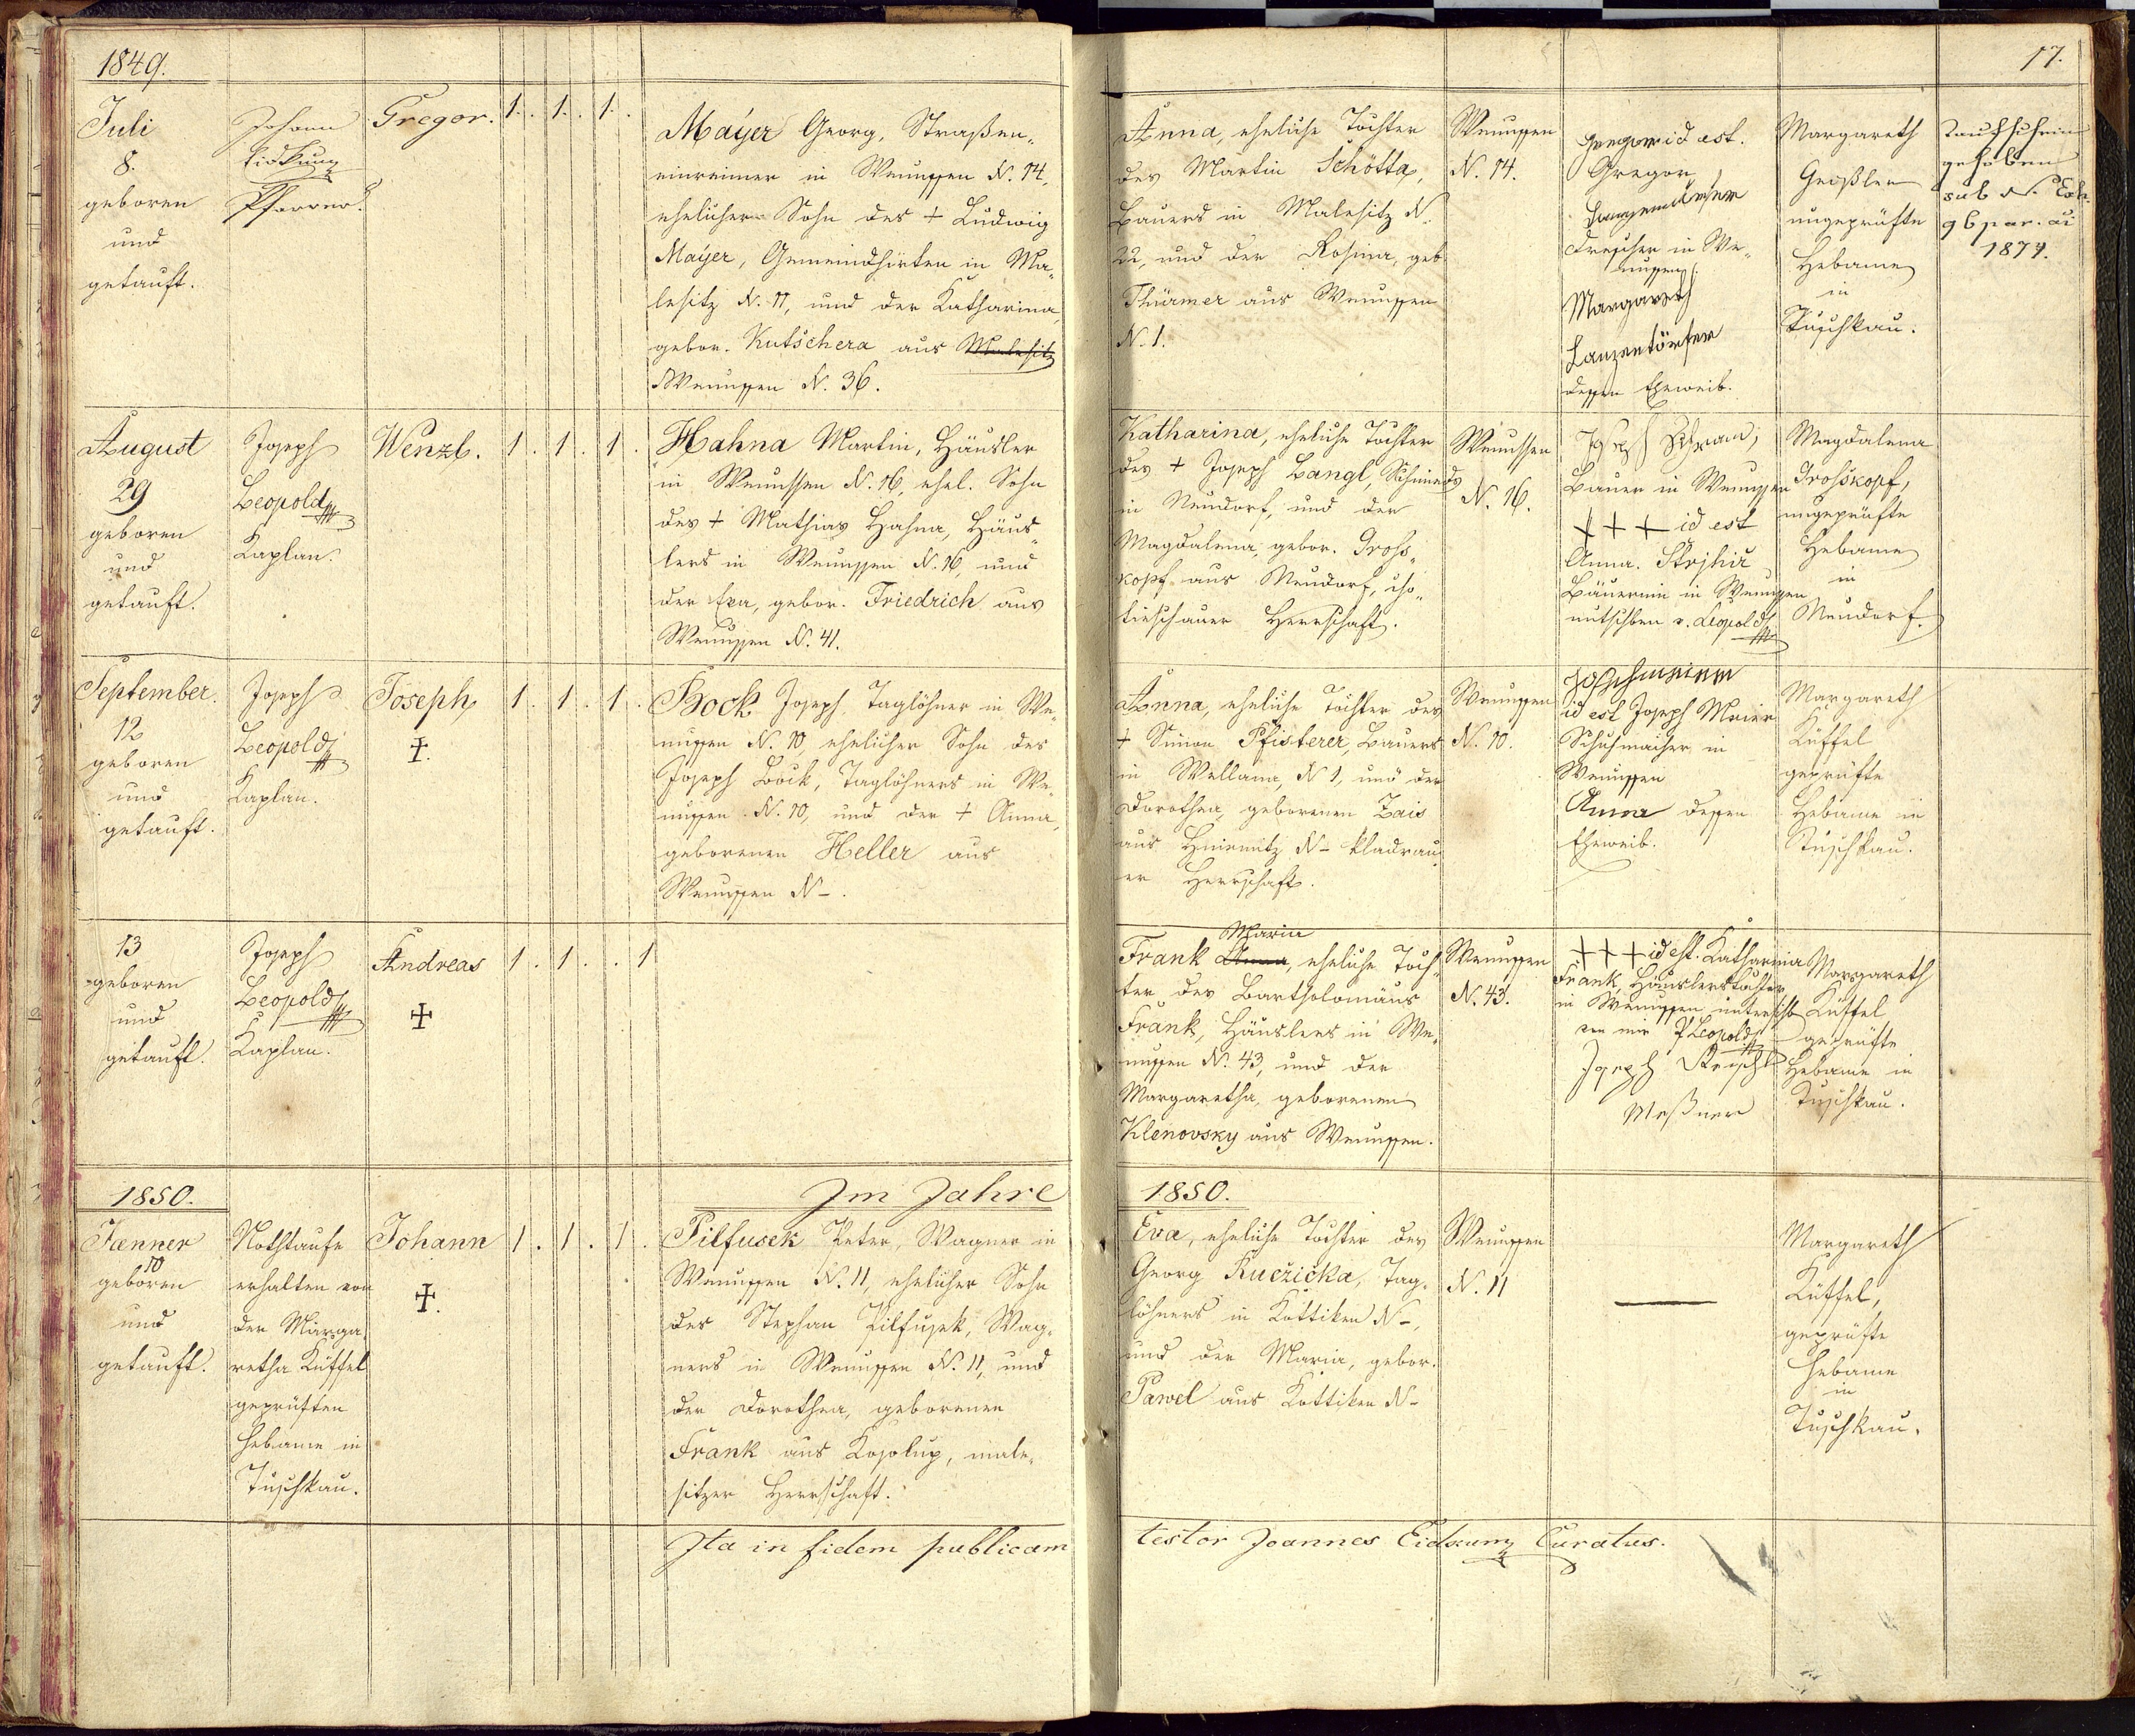 1849.
17.
Juli
8.
geboren
und
getauft.
Johann
Eidkum
Pfarrer.
Gregor.
1. 1. 1.
Mayer Georg, Straßen„
einreimer in Wenussen N. 74,
ehelicher Sohn des + Ludwig
Mayer, Gemeindhirten in Ma„
lesitz N. 11, und der Katharina,
gebor. Kutschera aus Malesitz
Wenussen N. 36.
Anna, eheliche Tochter
des Martin Schötta,
Bauers in Malesitz N.
22, und der Rosina, geb.
Thürmer aus Wenussen
N. 1.
Wenussen
N. 74.
id est.
Gregor
Drescher in We„
nussen
Margareth
Lanzendörfer
dessen Eheweib.
Margareth
Geißler
ungeprüfte
Hebame
in
Tuschkau.
Taufschein
gehoben
sub N. Exh.
96 par. ai
1874.
August
29
geboren
und
getauft.
Joseph
Leopold
Kaplan.
Wenzl.
1. 1. 1.
Hahna Martin, Häusler
in Wenussen N. 16, ehel. Sohn
des + Mathias Hahna, Häus„
lers in Wenussen N. 16, und
der Eva, gebor. Friedrich aus
Wenussen N. 41.
Katharina, eheliche Tochter
des + Joseph Langl, Schmieds
in Neudorf, und der
Magdalena, gebor. Gross„
kopf aus Neudorf, cho„
tieschauer Herrschaft.
Wenussen
N. 16.
Joseph
Bauer in Wenussen
+ + + id est
Anna
Bäuerinn in Wenussen
v. Leopold
Magdalena
Grosskopf,
ungeprüfte
Hebame
in
Neudorf.
September.
12
geboren
und
getauft.
Joseph
Leopold
Kaplan.
Joseph
+.
1. 1. 1.
Bock Joseph Taglöhner in We„
nussen N. 10, ehelicher Sohn des
Joseph Bock, Taglöhners in We„
nussen N. 10, und der + Anna,
geborenen Heller aus
Wenussen N –.
Anna, eheliche Tochter des
+ Simon Pfisterer, Bauers
in Wellana, N 1, und der
Dorothea, geborenen Zais
aus Hniemitz N – kladrau„
er Herrschaft.
Wenussen
N. 10.
id est Joseph Meier
Schuhmacher in
Wenussen
Anna dessen
Eheweib.
Margareth
Küffel
geprüfte
Hebame in
Tuschkau.
13
geboren
und
getauft.
Joseph
Leopold
Kaplan.
Andreas
+
1. 1. . 1
Maria
Frank Anna, eheliche Toch„
ter des Bartholomäus
Frank, Häuslers in We„
nussen N. 43, und der
Margaretha, geborenen
Klenovsky aus Wenussen.
Wenussen
N. 43.
+ + + id est. Katharina
Frank, Häuslerstochter
in Wenussen unterschb
von mir P Leopold
Joseph
Meßner
Margareth
Küffel
geprüfte
Hebame in
Tuschkau.
1850.
Im Jahre
1850.
Jænner
10
geboren
und
getauft.
Nothtaufe
erhalten von
der Marga„
retha Küffel
geprüften
Hebame in
Tuschkau.
Johann
+.
1. 1. 1.
Pilfusek Peter, Wagner in
Wenussen N. 11, ehelicher Sohn
des Stephan Pilfusek, Wag„
ners in Wenussen N. 11, und
der Dorothea, geborenen
Frank aus Kosolup, male„
sitzer Herrschaft.
Eva, eheliche Tochter des
Georg Ručžička, Tag„
löhners in Kottiken N –,
und der Maria, gebor.
Pawel aus Kottiken N –
Wenussen
N. 11
Margareth
Küffel,
geprüfte
Hebame
in
Tuschkau.
Ita in fidem publicam
testor Joannes Eidkum Curatus.